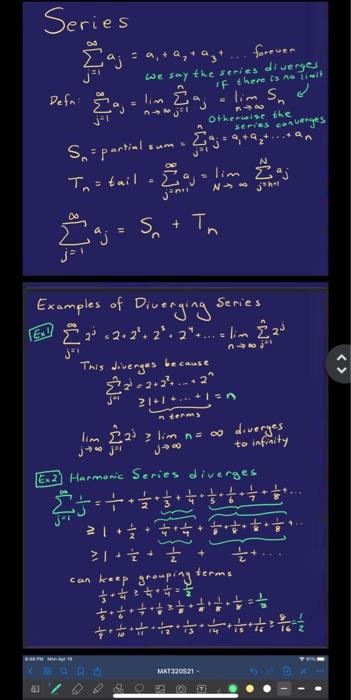 Series
∞ Σ j=1 a_j = a_1 + a_2 + a_3 + ... forever
we say the series diverges
if there is no limit
Defn: ∞ Σ j=1 a_j = lim n→∞ n Σ j=1 a_j = lim n→∞ S_n
Otherwise the
series converges
S_n = partial sum = n Σ j=1 a_j = a_1 + a_2 + ... + a_n
T_n = tail = ∞ Σ j=n+1 a_j = lim N→∞ N Σ j=n+1 a_j
∞ Σ j=1 a_j = S_n + T_n
Examples of Diverging Series
Ex1 ∞ Σ j=1 2^j = 2 + 2² + 2³ + 2⁴ + ... = lim n→∞ n Σ j=1 2^j
This diverges because
n Σ j=1 2^j = 2 + 2² + ... + 2^n
≥ 1 + 1 + ... + 1 = n
n terms
lim j→∞ n Σ j=1 2^j ≥ lim j→∞ n = ∞ diverges
to infinity
Ex2 Harmonic Series diverges
∞ Σ j=1 1/j = 1/1 + 1/2 + 1/3 + 1/4 + 1/5 + 1/6 + 1/7 + 1/8 + ...
≥ 1 + 1/2 + 1/4 + 1/4 + 1/8 + 1/8 + 1/8 + 1/8 + ...
≥ 1 + 1/2 + 1/2 + 1/2 + ...
can keep grouping terms
1/3 + 1/4 ≥ 1/4 + 1/4 = 1/2
1/5 + 1/6 + 1/7 + 1/8 ≥ 1/8 + 1/8 + 1/8 + 1/8 = 1/2
1/9 + 1/10 + 1/11 + 1/12 + 1/13 + 1/14 + 1/15 + 1/16 ≥ 8/16 = 1/2
8:48 PM Mon Apr 19
MAT320S21